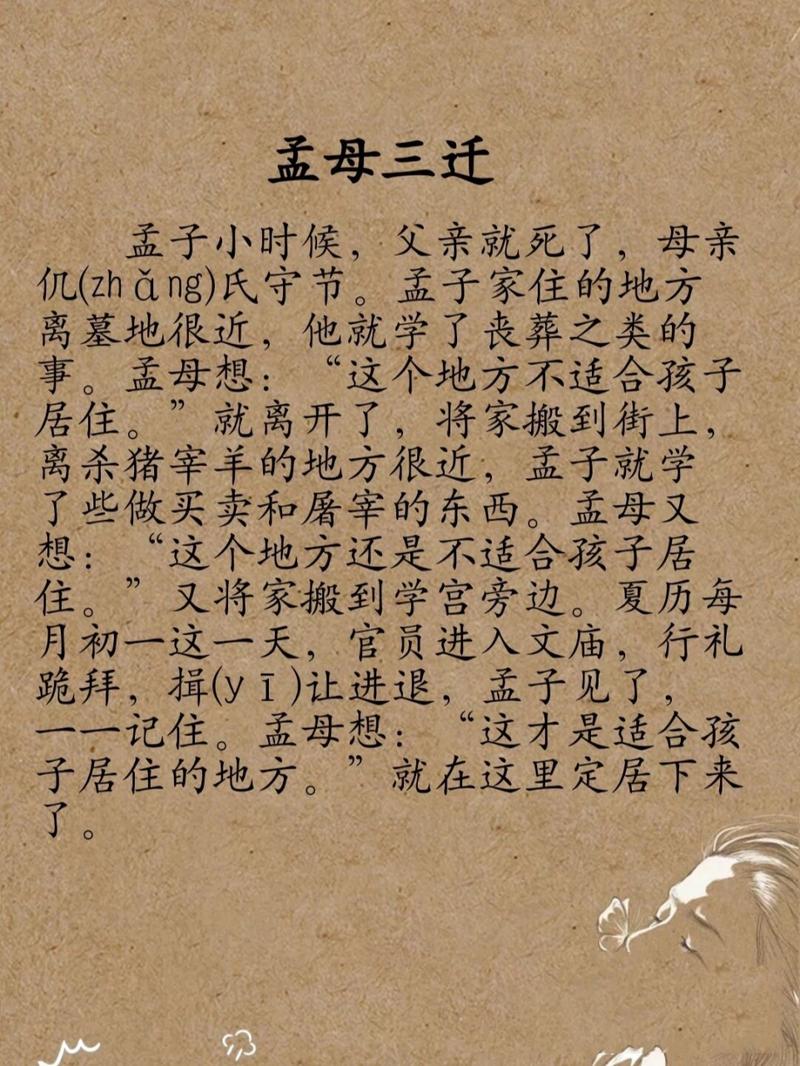 孟母三迁
孟子小时候，父亲就死了，母亲
仉(zhǎng)氏守节。孟子家住的地方
离墓地很近，他就学了丧葬之类的
事。孟母想：“这个地方不适合孩子
居住。”就离开了，将家搬到街上，
离杀猪宰羊的地方很近，孟子就学
了些做买卖和屠宰的东西。孟母又
想：“这个地方还是不适合孩子居
住。”又将家搬到学宫旁边。夏历每
月初一这一天，官员进入文庙，行礼
跪拜，揖(yī)让进退，孟子见了，
一一记住。孟母想：“这才是适合孩
子居住的地方。”就在这里定居下来
了。